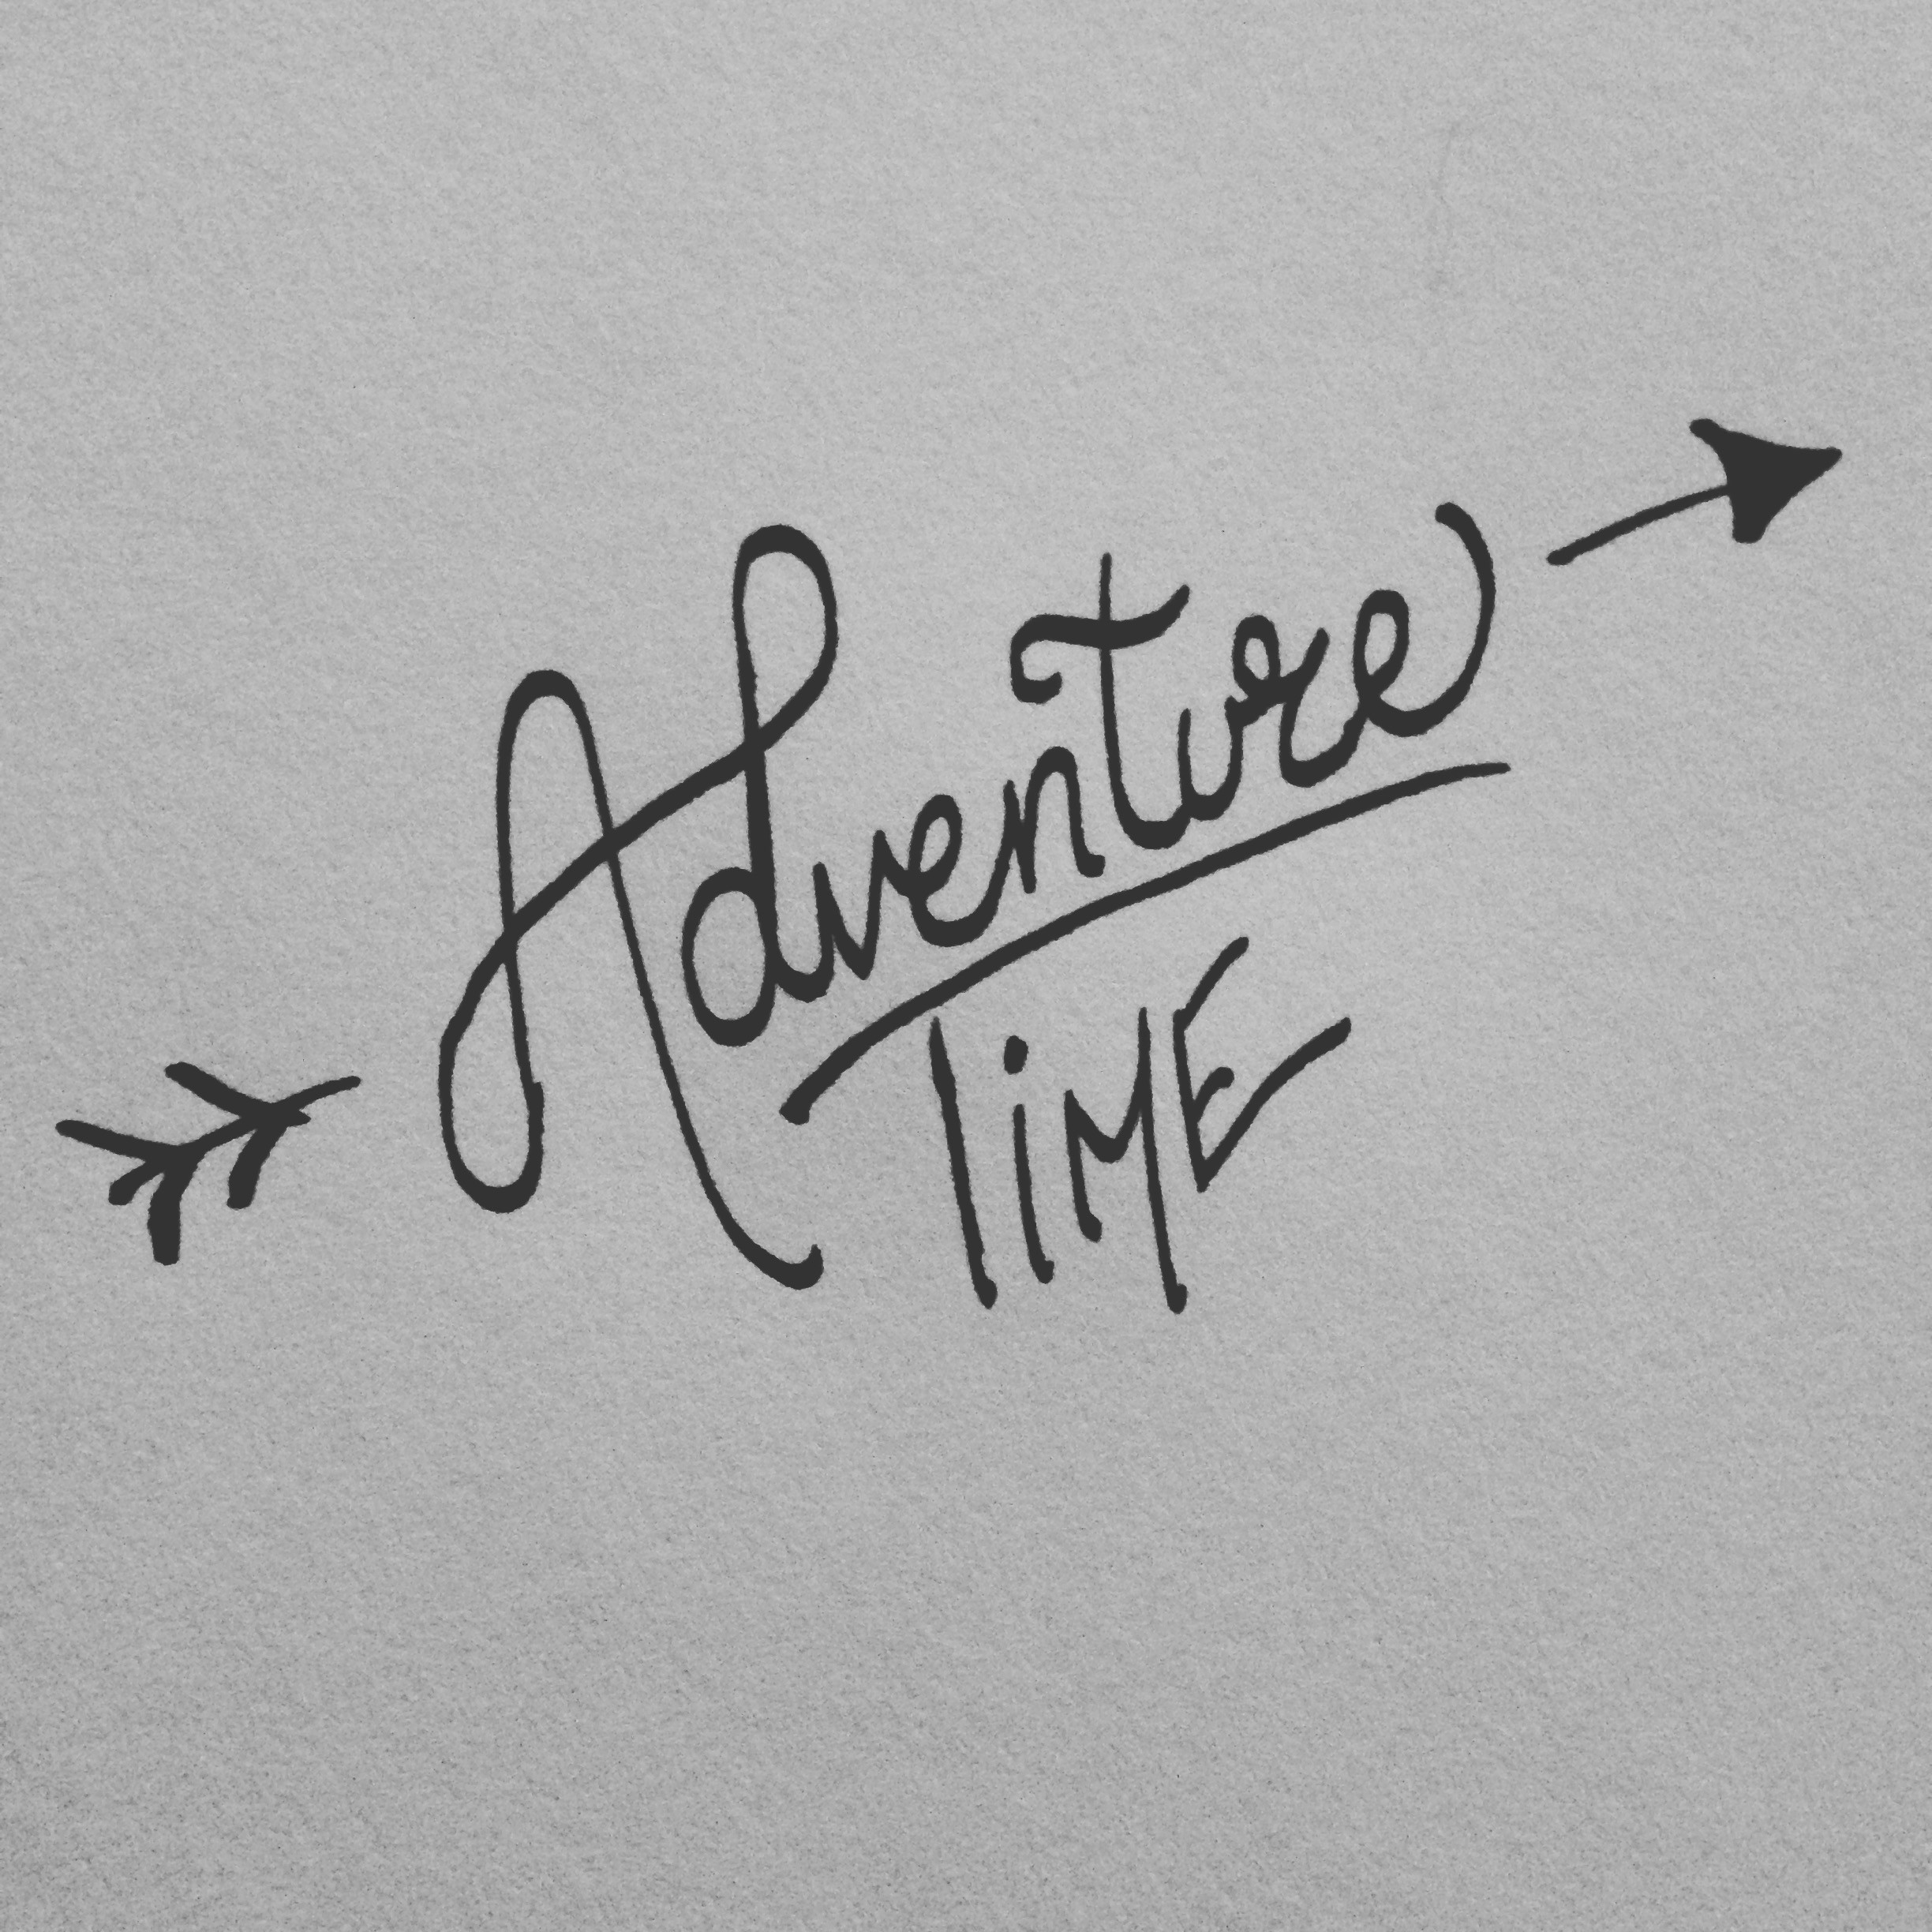 Adventure
TiME